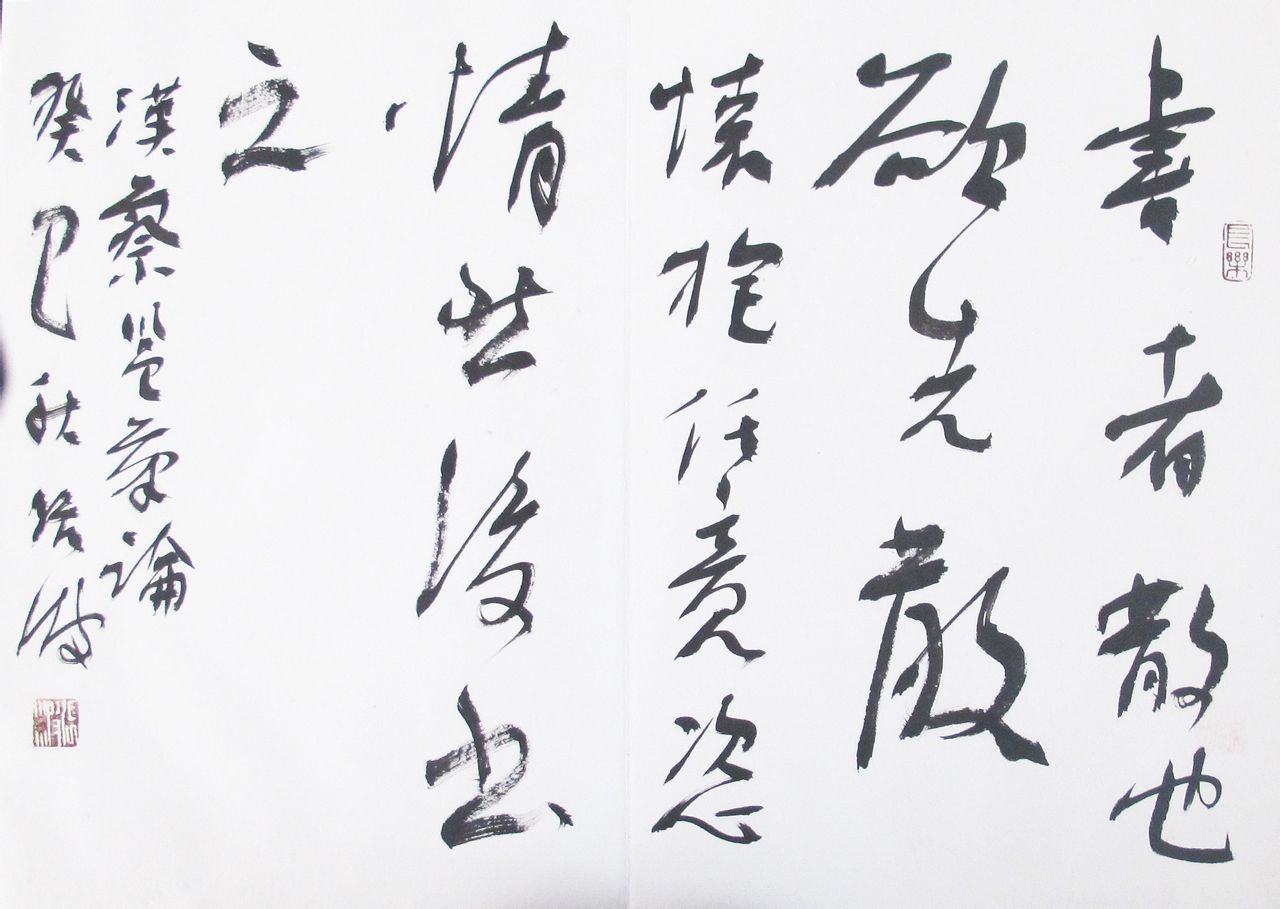 長樂
書者散也
欲先散
懷抱任意恣
情然後書
之
漢蔡邕筆論
癸巳秋培波